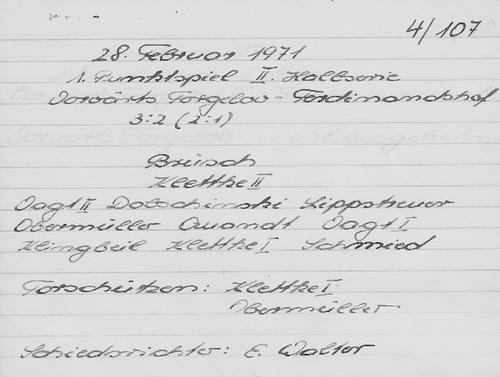 4/107
28. Februar 1971
1. Punktspiel II. Halbserie
Vorwärts Torgelow - Ferdinandshof
3:2 (2:1)
Brüsch
Klettke II
Vagt II Dobschinski Lippstreuer
Obermüller Quandt Vagt I
Klingbeil Klettke I Schmied
Torschützen: Klettke I
Obermüller
Schiedsrichter: E. Walter